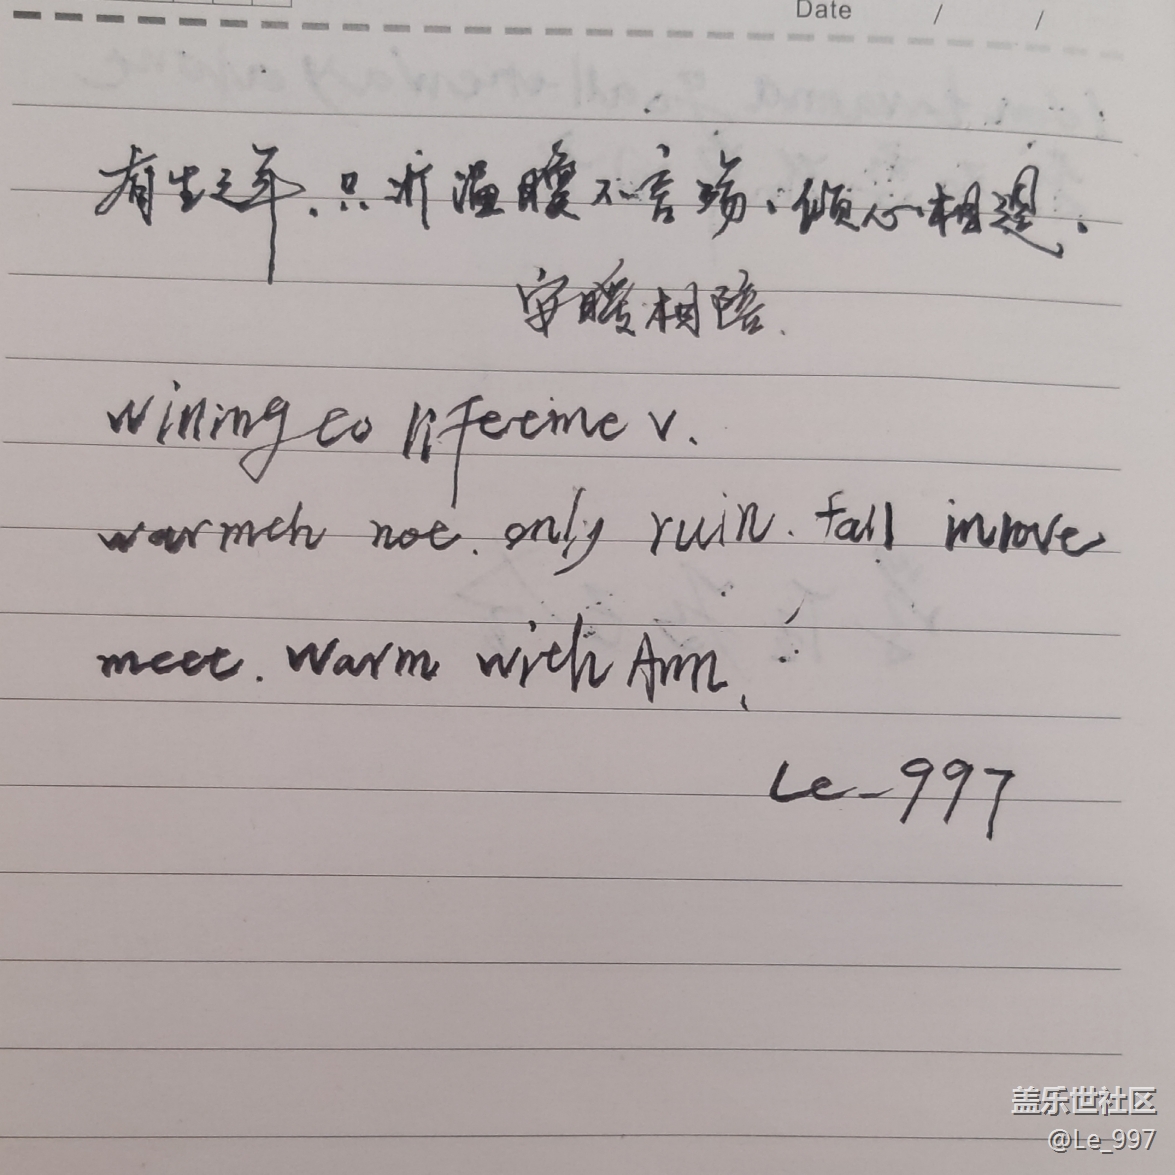 Date / /
有生之年.只诉温暖不言殇、倾心相遇、
安暖相陪.
wining to lifetime v.
warmth not. only ruin. fall in love
meet. warm with Ann.
Le-997
盖乐世社区
@Le_997